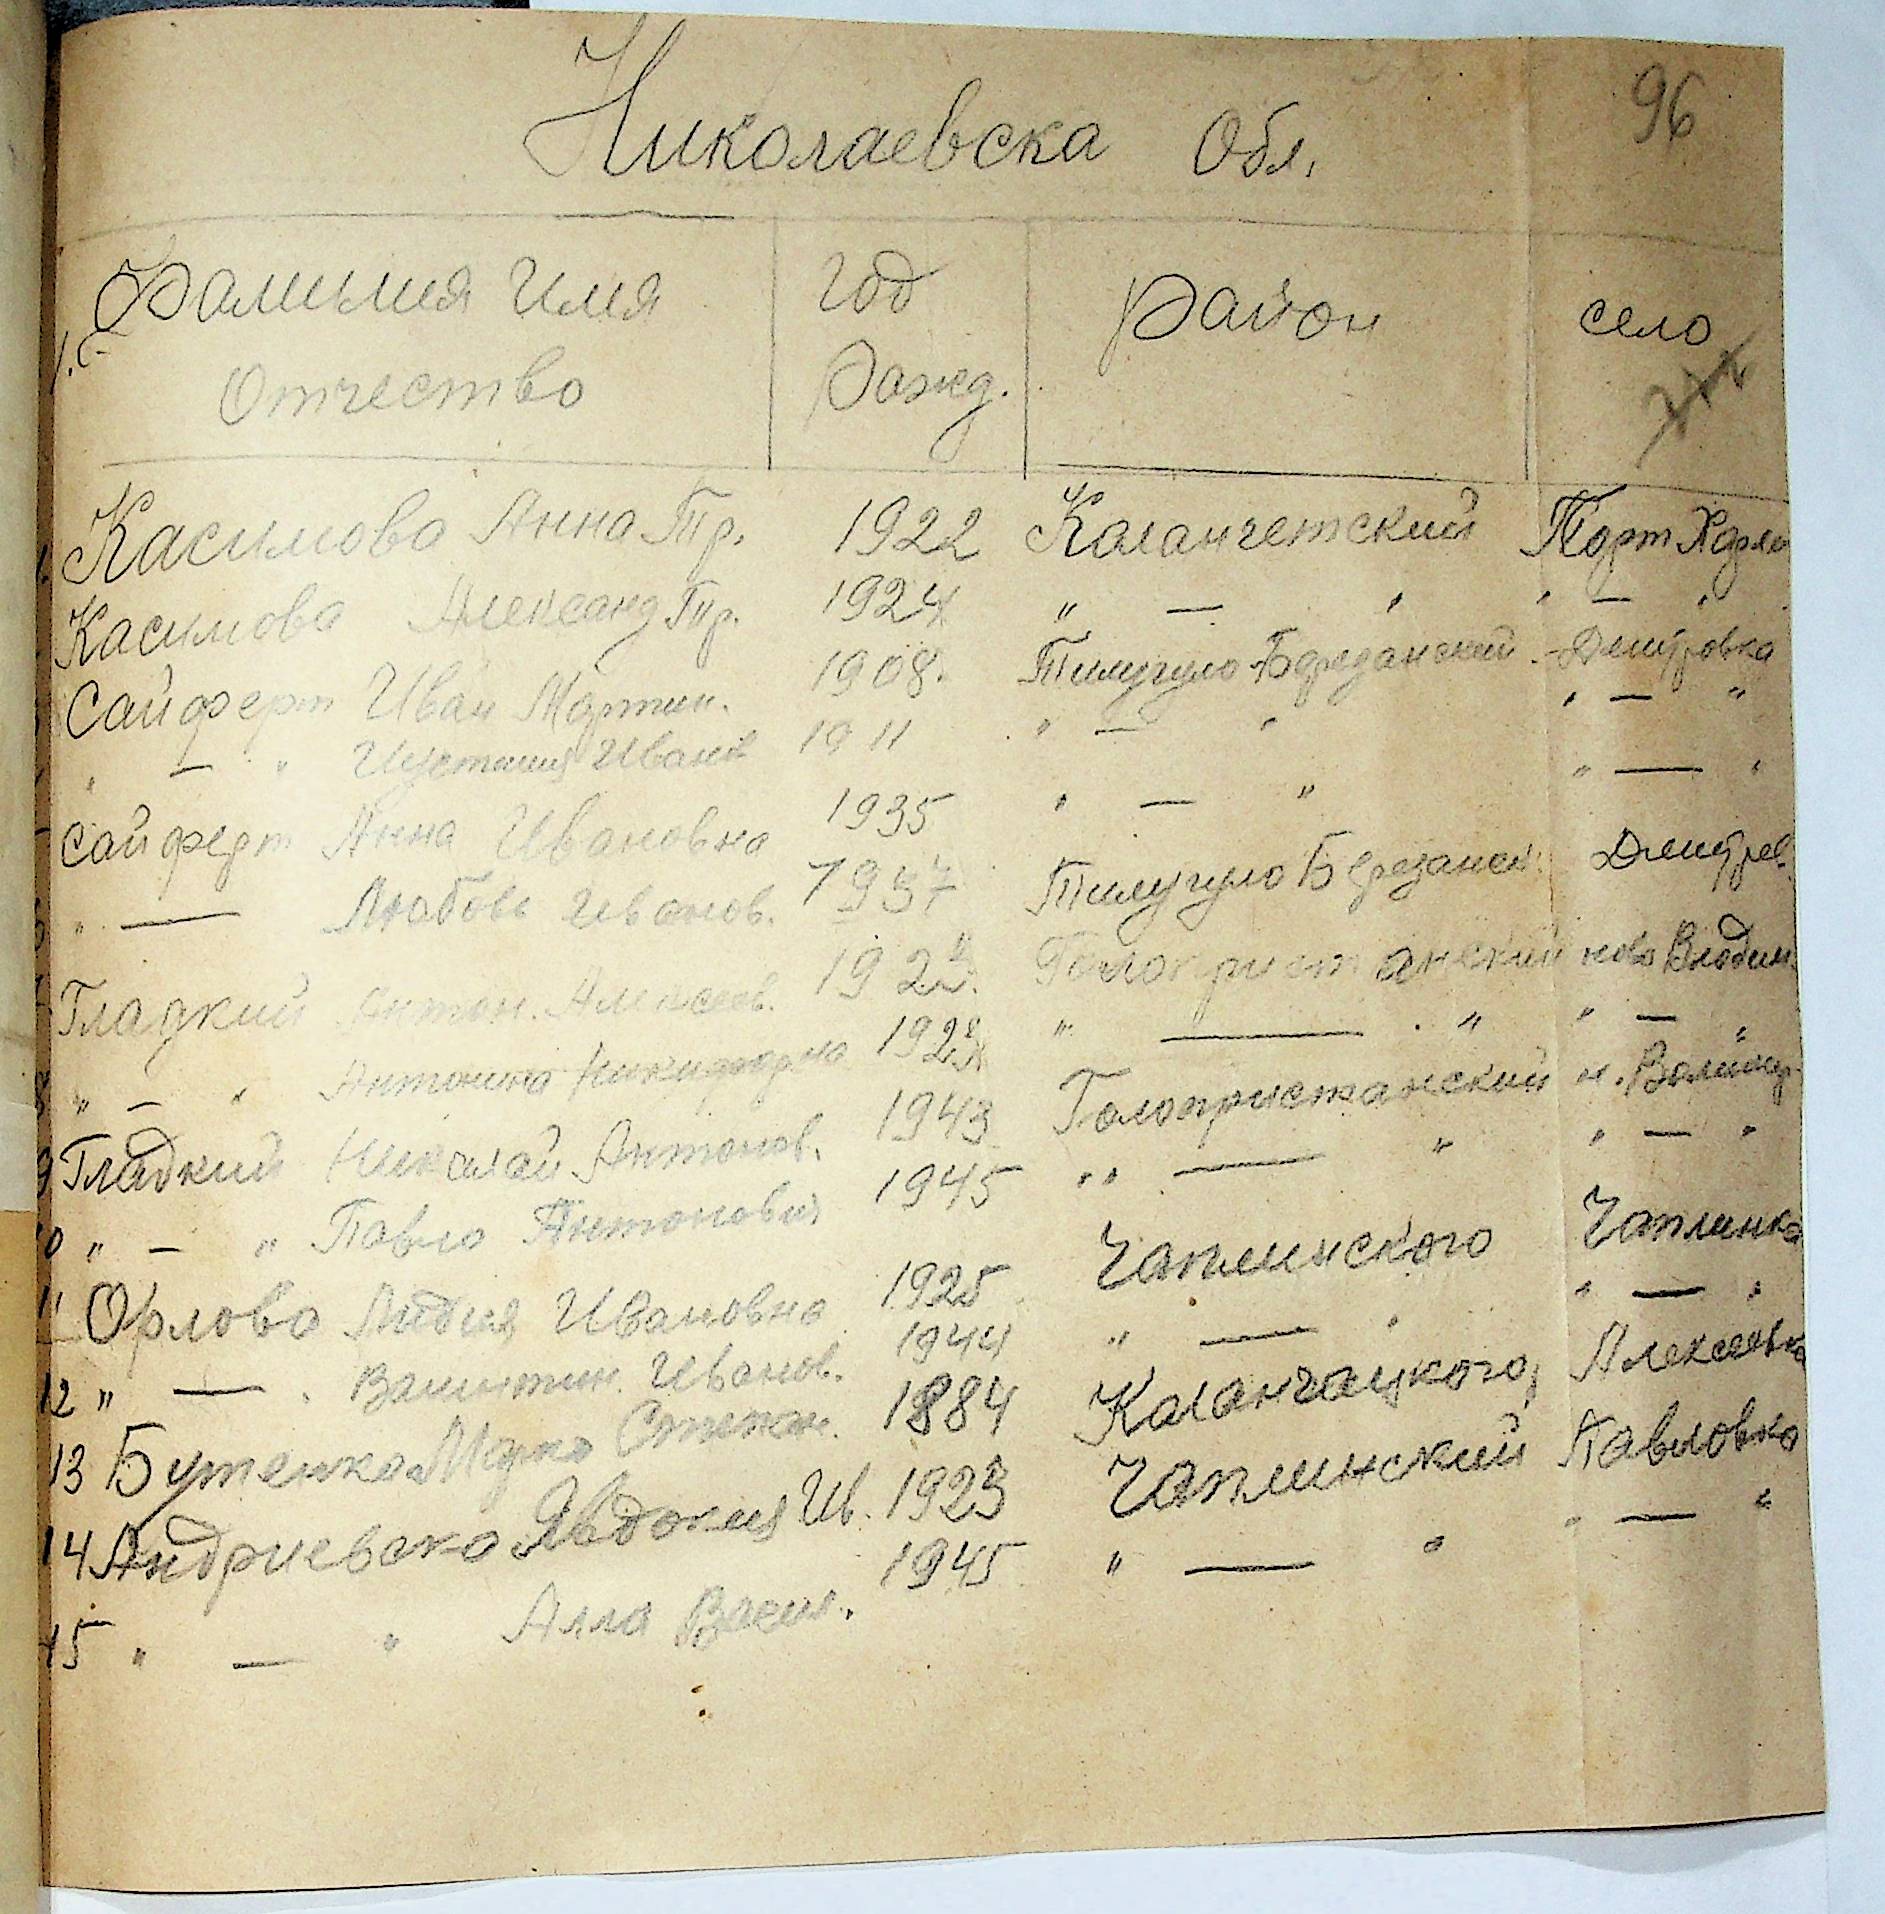 96
Николаевска Обл.
Фамилия Имя Год Район село
Отчество Рожд.
Касимова Анна Гр. 1922 Каланчетский Порт Хорли
Касимова Александ Гр. 1924 " — " " — "
Сайферт Иван Мартин. 1908. Тилугуло-Березанский Дмитровка
" — " Иванов 1911 " — " " — "
Сайферт Анна Ивановна 1935 " — " " — "
" — Любовь Иванов. 1937 Тилугуло Березанск. Дмитров.
Гладкий Антон. Алексеев. Голопристанский ново Владим.
8 " — " Антонина Никифоровна " — " " — "
9 Гладкий Николай Антонов. 1943 Голопристанский н.
10 " — " Павло Антонович 1945 " — " " — "
11 Орлова Лидия Ивановна 1925 Чаплинского Чаплинка
12 " — " Валинтин. Иванов. 1944 " — " " — "
13 Бутенко Марко Степан. 1884 Каланчацкого, Алексеевка
14 Андриевска Явдокия Ив. 1923 Чаплинский Павловка
15 " — " Алла Васил. 1945 " — " " — "